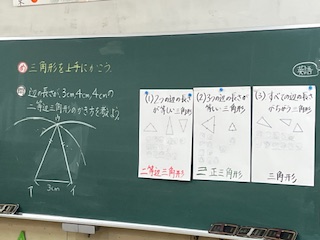 め 三角形を上手にかこう。
問 辺の長さが、3cm,4cm,4cmの
二等辺三角形のかき方を考えよう。
ア イ
3cm
(1)2つの辺の長さが
等しい三角形
二等辺三角形
(2)3つの辺の長さが
等しい三角形
正三角形
(3)すべての辺の長さ
がちがう三角形
三角形